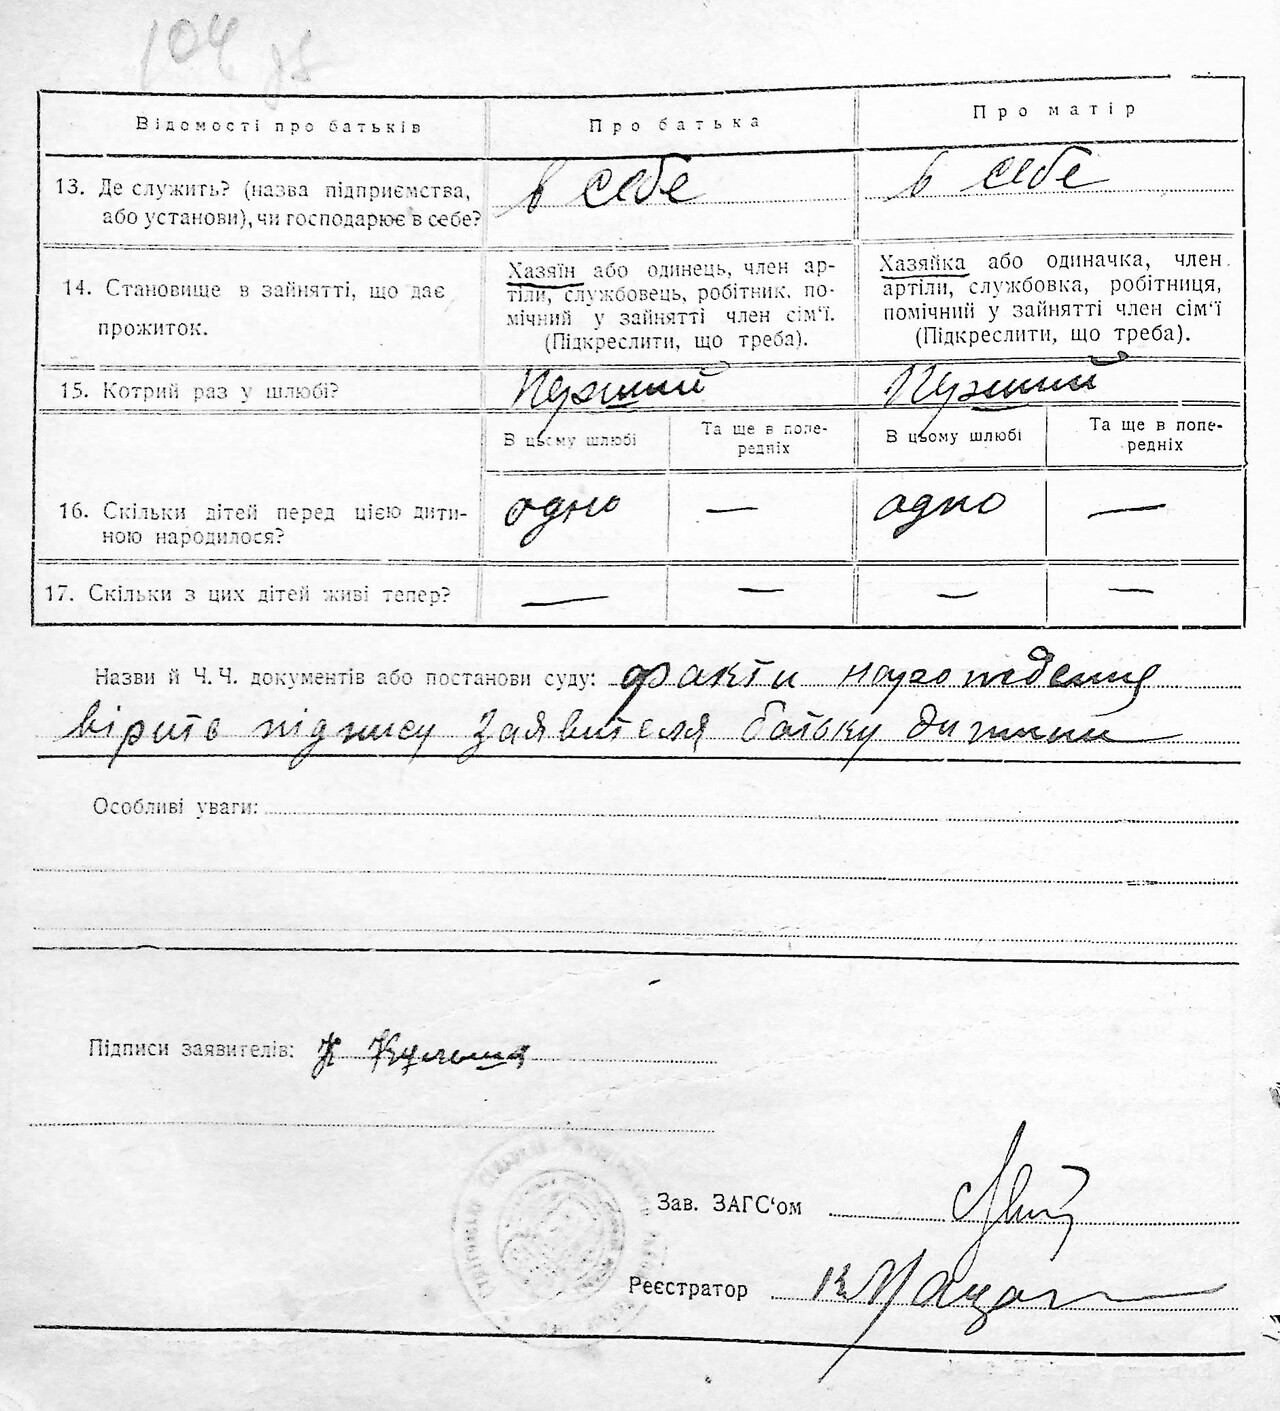 104
Відомості про батьків
Про батька
Про матір
13. Де служить? (назва підприємства,
або установи), чи господарює в себе?
в себе
в себе
14. Становище в зайнятті, що дає
прожиток.
Хазяїн або одинець, член ар-
тіли, службовець, робітник, по-
мічний у зайнятті член сім‘ї.
(Підкреслити, що треба).
Хазяйка або одиначка, член
артіли, службовка, робітниця,
помічний у зайнятті член сім‘ї
(Підкреслити, що треба).
15. Котрий раз у шлюбі?
Перший
Перший
В цьому шлюбі
Та ще в попе-
редніх
В цьому шлюбі
Та ще в попе-
редніх
16. Скільки дітей перед цією дити-
ною народилося?
одно
—
одно
—
17. Скільки з цих дітей живі тепер?
—
—
—
—
Назви й Ч. Ч. документів або постанови суду: факти
вірить підпису заявителя батьку дитини
Особливі уваги:
Підписи заявителів:
Зав. ЗАГС‘ом
Реєстратор